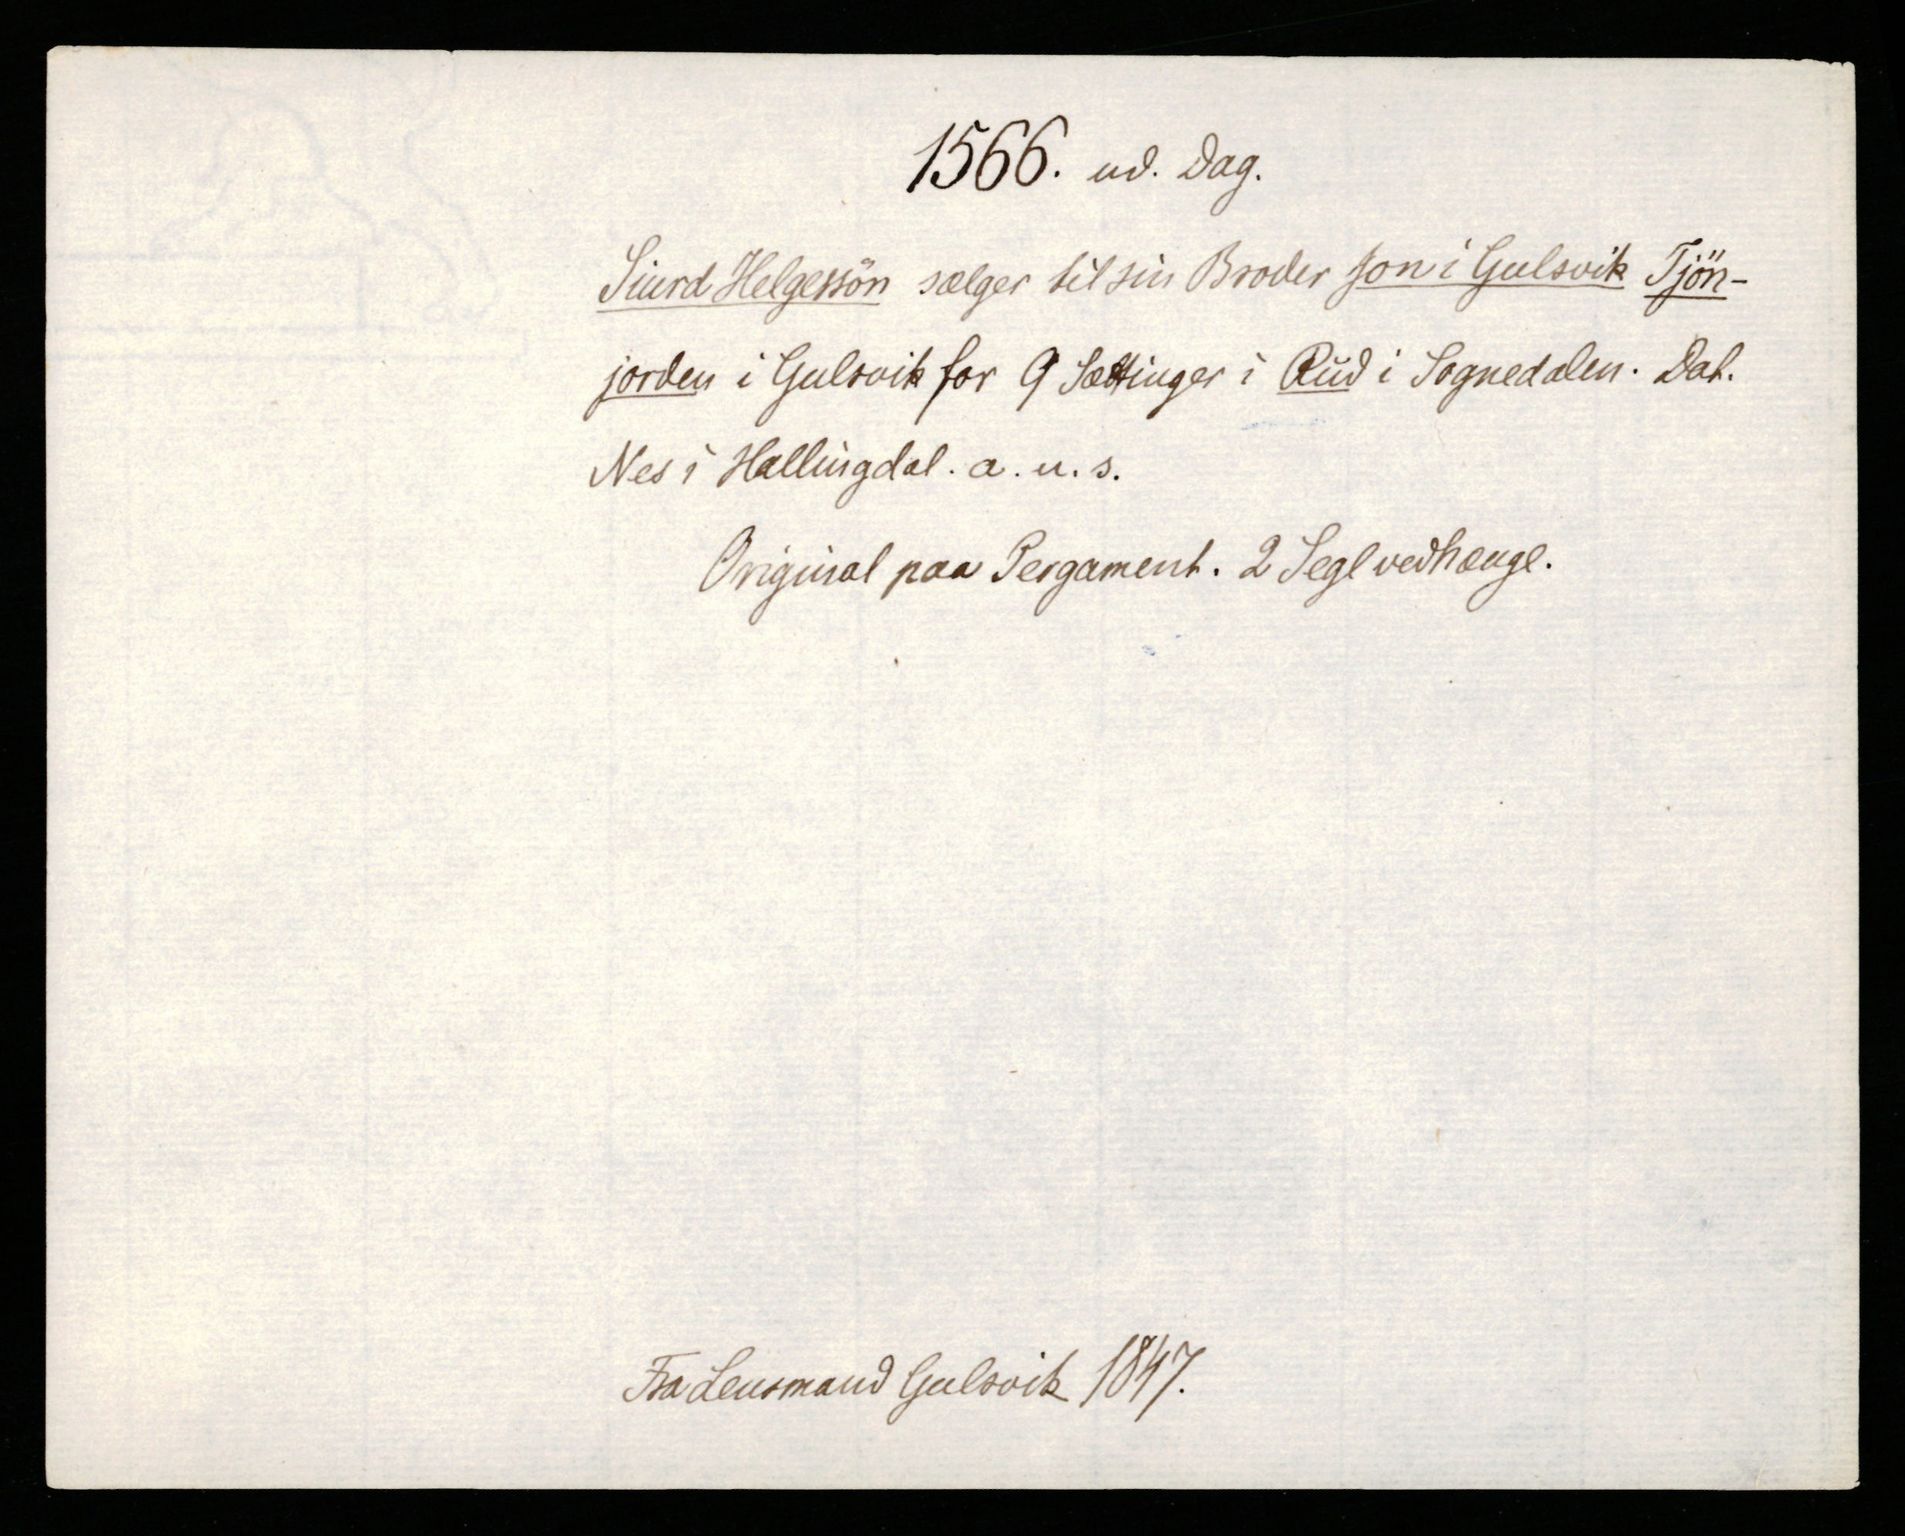 1566. ud. Dag.
Siurd Helgessön sælger til sin Broder Jon i Gulsvik Tjön-
jorden i Gulsvik for 9 Sættinger i Rud i Sognedalen. Dat.
Nes i Hallingdal. a. u. s.
Original paa Pergament. 2 Segl vedhænge.
Fra Lensmand Gulsvik 1847.